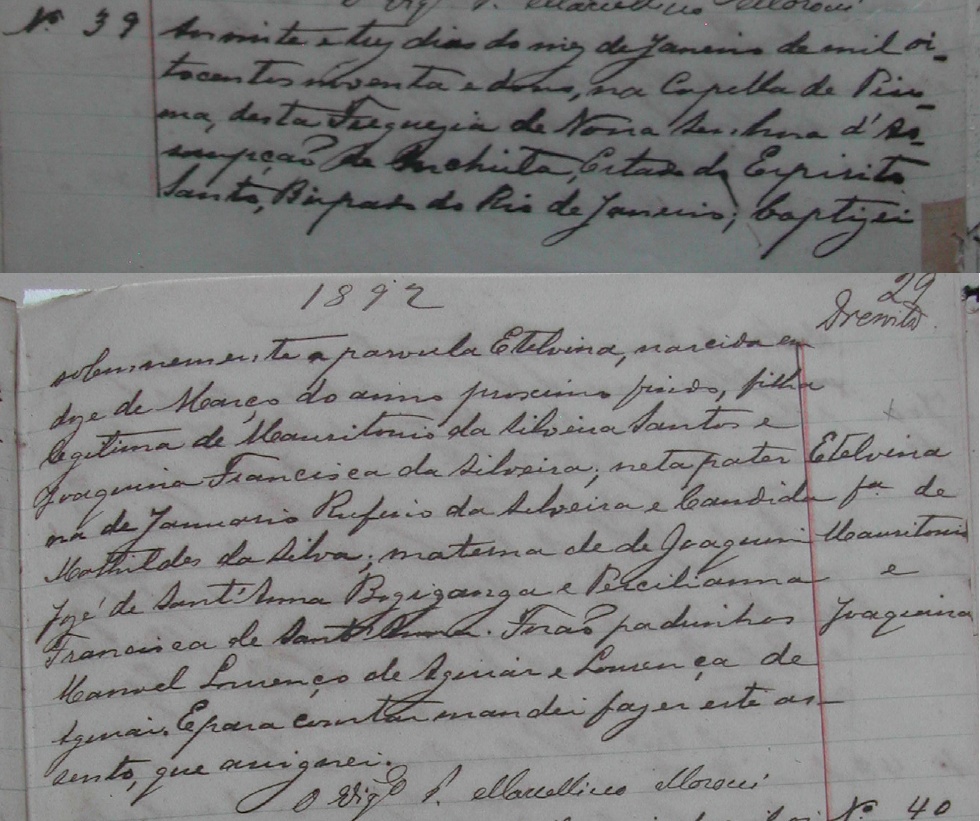 O Vigº P. Marcellino Moroni
Nº 39
Aos vinte e trez dias do mez de Janeiro de mil oi-
tocentos noventa e dous, na Capella de Piu-
ma, desta Freguezia de Nossa Senhora d'As-
sumpção de Benevente, Estado do Espirito
Santo, Bispado do Rio de Janeiro; baptizei
1892
29
solemnemente a parvula Etelvina, nascida em
doze de Março do anno proximo findo, filha
legitima de Mauritonio da Silveira Santos e
Joaquina Francisca da Silveira; neta pater
na de Januario Rufino da Silveira e Candida
Mathildes da Silva; materna de de Joaquim
José de Sant'Anna Bogiganga e Percilianna
Francisca de Sant'Anna. Forão padrinhos
Manoel Lourenço de Aguiar e Lourença de
Aguiar. E para constar mandei fazer este as-
sento, que assignei.
O Vigº P. Marcellino Moroni
Etelvina
fª de
Mauritonio
e
Joaquina
Nº 40